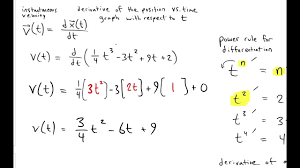 instantaneous velocity
derivative of the position vs. time graph with respect to t
v⃗(t) = d x⃗(t) / dt
v(t) = d/dt (1/4 t³ - 3t² + 9t + 2)
v(t) = 1/4 [3t²] - 3[2t] + 9[1] + 0
v(t) = 3/4 t² - 6t + 9
power rule for differentiation
tⁿ' = n
t²' =
t³' =
t⁴' =